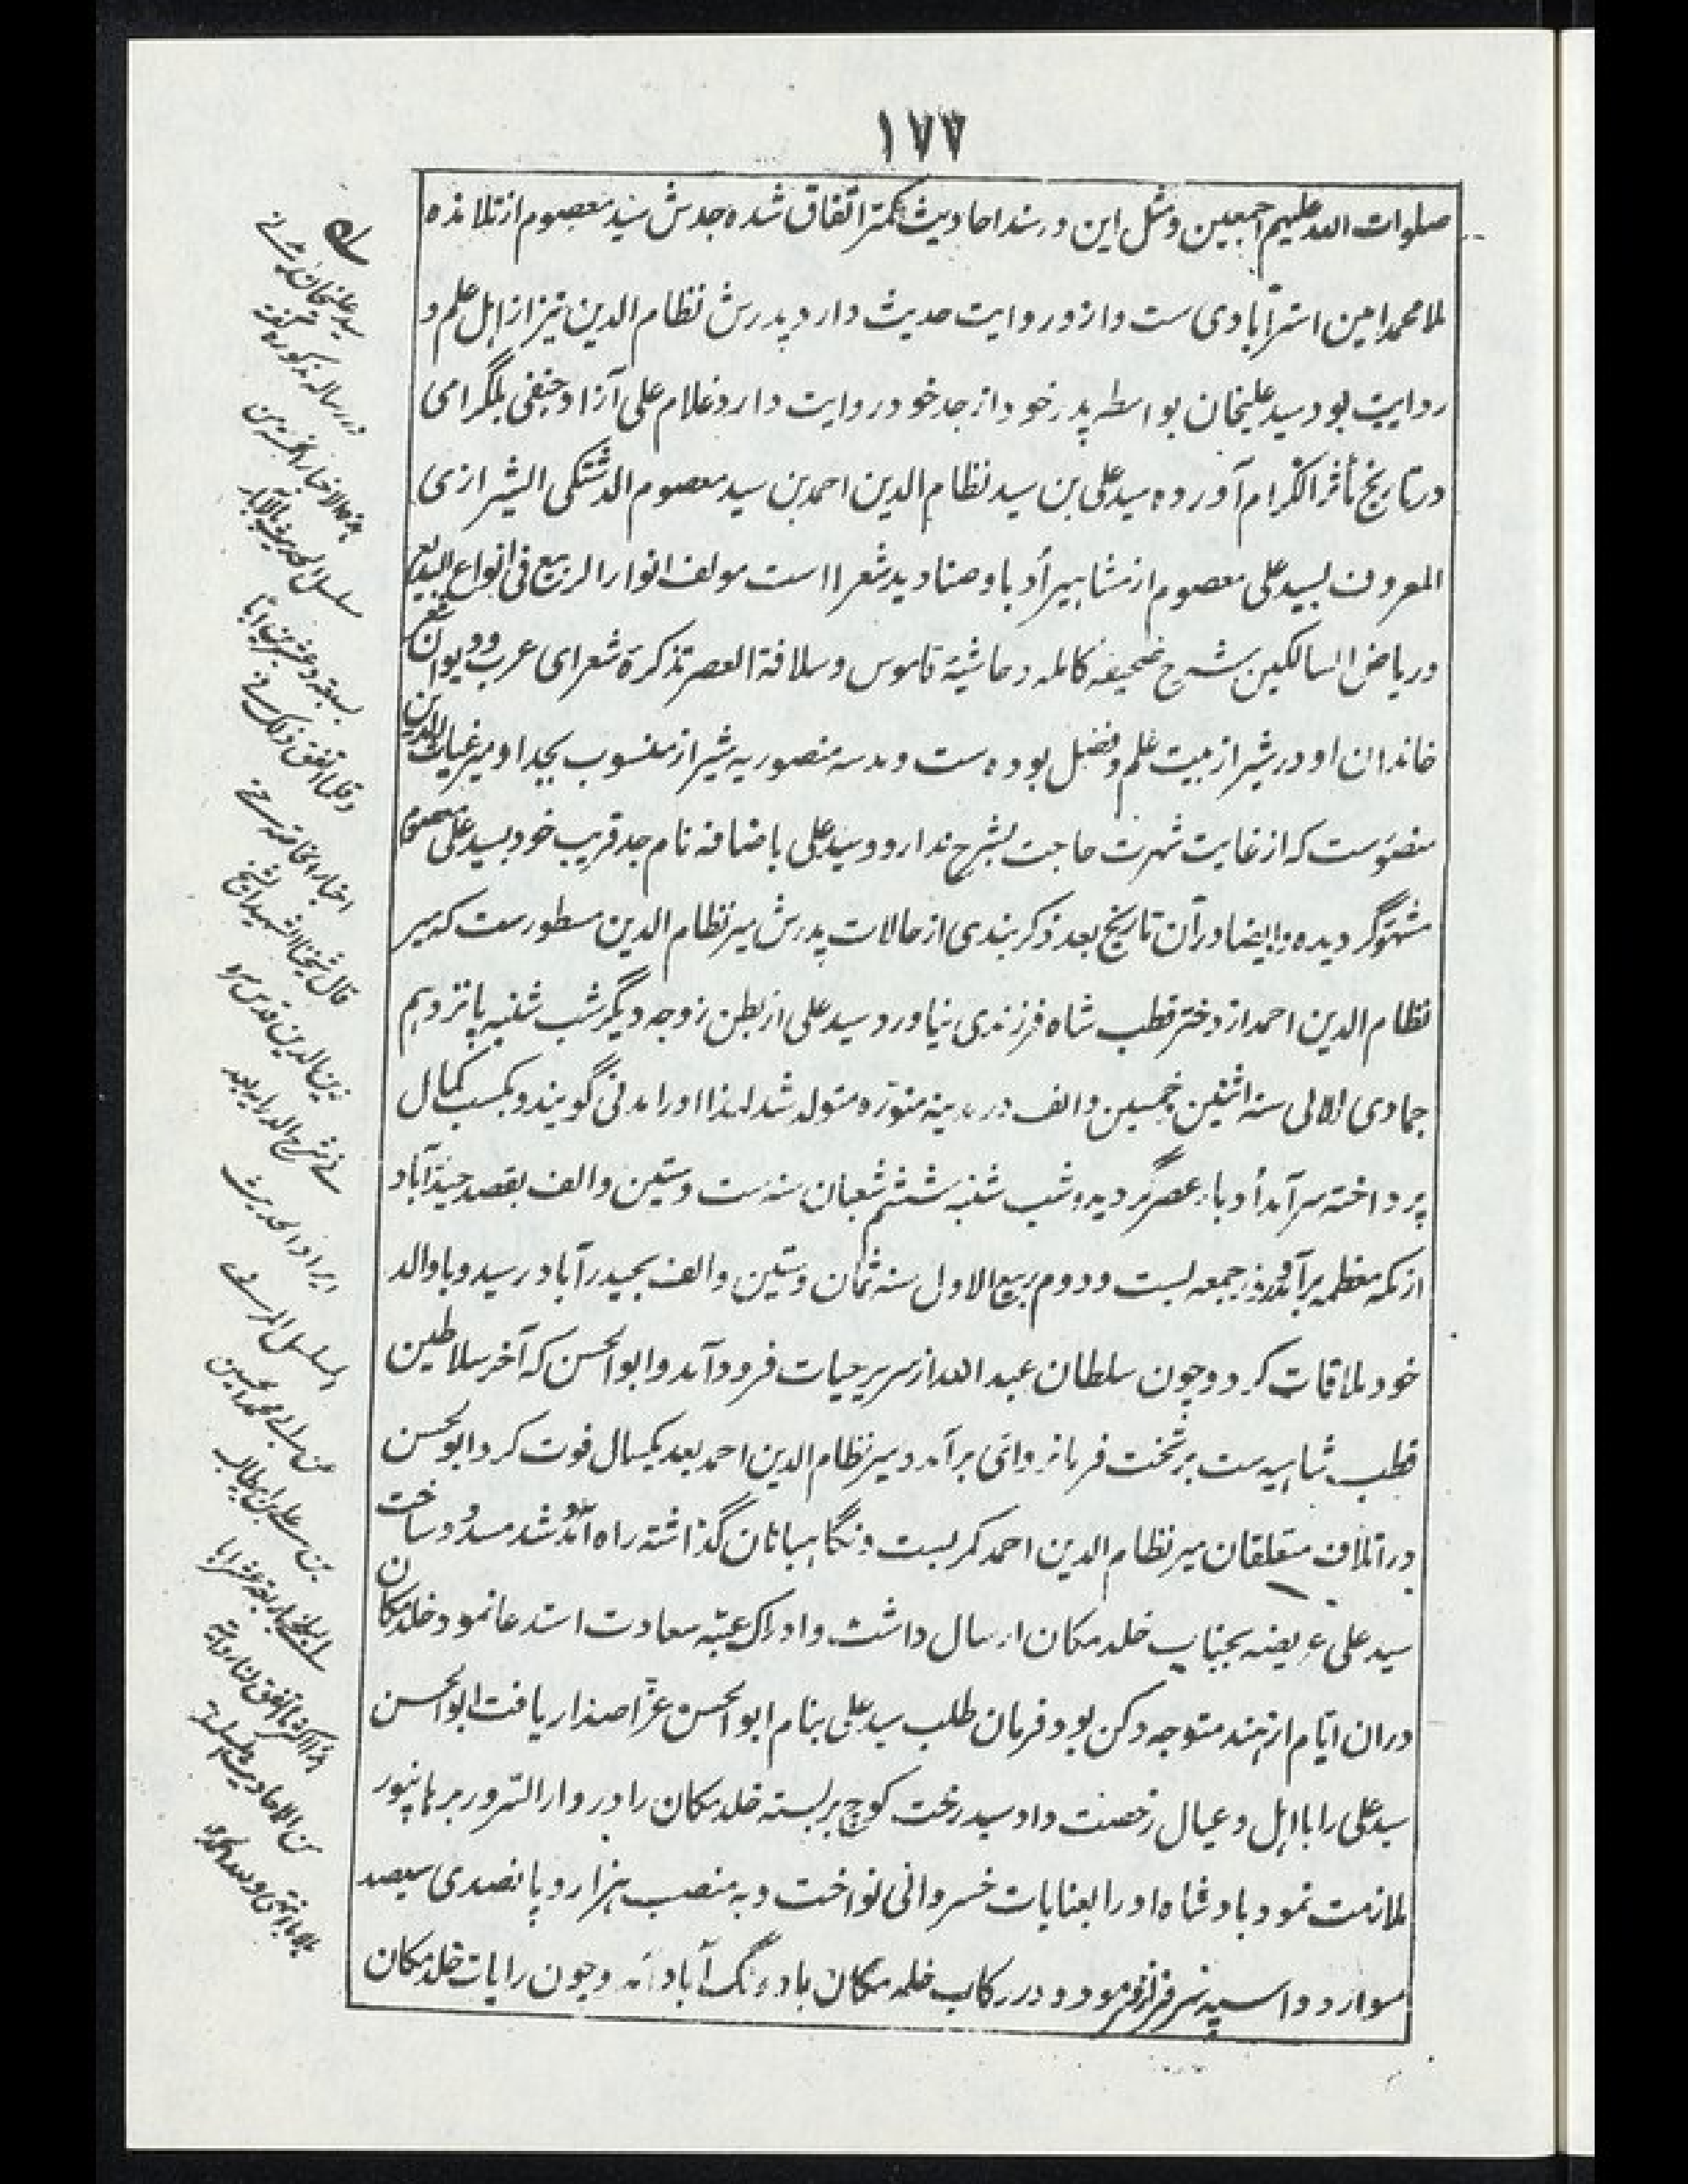 ۱۷۷
صلوات الله علیهم اجمعین و مثل این در سند احادیث کمتر اتفاق شده جدش سید معصوم از تلامذه
ملا محمد امین استرآبادی ست و ازو روایت حدیث دارد پدرش نظام الدین نیز از اهل علم و
روایت بود سید علیخان بواسطه پدر خود از جد خود روایت دارد غلام علی آزاد حنفی بلگرامی
در تاریخ مآثر الکرام آورده سید علی بن سید نظام الدین احمد بن سید معصوم الدشتکی الشیرازی
المعروف بسید علی معصوم از مشاهیر أدبا و صنادید شعرا است مولف انوار الربیع فی انواع البدیع
و ریاض السالکین شرح صحیفه کامله و حاشیۀ قاموس و سلافة العصر تذکرۀ شعرای عرب و دیوان شعر
خاندان او در شیراز بیت علم و فضل بوده ست و مدرسه منصوریه شیراز منسوب بجد او میر غیاث الدین
منصورست که از غایت شهرت حاجت بشرح ندارد و سید علی باضافه نام جد قریب خود بسید علی معصوم
مشتهر گردیده و ایضا در آن تاریخ بعد ذکر بندی از حالات پدرش میر نظام الدین مسطورست که میر
نظام الدین احمد از دختر قطب شاه فرزندی نیاورد سید علی از بطن زوجه دیگر شب شنبه پانزدهم
جمادی الاولی سنه اثنین و خمسین و الف در مدینه منوره متولد شد لهذا او را مدنی گویند و بکسب کمال
پرداخته سرآمد أدباء عصر گردیده شب شنبه ششم شعبان سنه ست و ستین و الف بقصد حیدرآباد
از مکه معظمه برآمد و روز جمعه بست و دوم ربیع الاول سنه ثمان و ستین و الف بحیدرآباد رسید و با والد
خود ملاقات کرد و چون سلطان عبد الله از سریر حیات فرود آمد و ابو الحسن که آخر سلاطین
قطب شاهیه ست بر تخت فرمانروائی برآمد و میر نظام الدین احمد بعد یکسال فوت کرد ابو الحسن
در اتلاف متعلقان میر نظام الدین احمد کمر بست و نگاهبانان گذاشته راه آمد و شد مسدود ساخت
سید علی عریضه بجناب خلد مکان ارسال داشت و ادراک عتبه سعادت استدعا نمود خلد مکان
دران ایام از هند متوجه دکن بود فرمان طلب سید علی بنام ابو الحسن عز اصدار یافت ابو الحسن
سید علی را با اهل و عیال رخصت داد سید رخت کوچ بربسته خلد مکان را در دار السرور برهانپور
ملازمت نمود بادشاه او را بعنایات خسروانی نواخت و به منصب هزار و پانصدی سیصد
سوار دو اسپه سرفراز فرمود و در رکاب خلد مکان باورنگ آباد آمد و چون رایات خلد مکان
سید علیخان
در رساله مذکوره
سلسل الحدیث بالآباء
بسبعة و عشرین ابا
و قلما اتفق ذلک فی
اخبار الخاصة
قال شیخنا الشهید الشیخ
زین الدین قدس سره
فی شرح الدرایه بعد
ایراد الحدیث
المسلسل
بن علی بن ابیطالب
باربعة عشر ابا
هذا اکثر ما اتفق لنا روایته
من الاحادیث المسلسلة
بالآباء انتهی